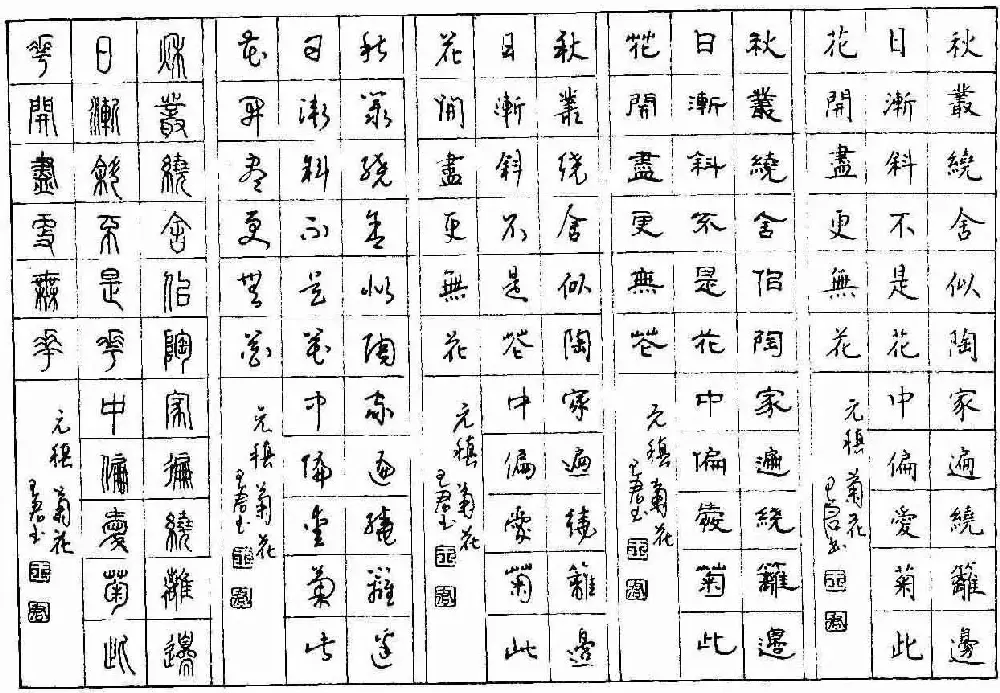 秋叢繞舍似陶家遍繞籬邊
日漸斜不是花中偏愛菊此
花開盡更無花
元稹
菊花
王君书
秋叢繞舍似陶家遍繞籬邊
日漸斜不是花中偏愛菊此
花開盡更無花
元稹
菊花
王君书
秋叢繞舍似陶家遍繞籬邊
日漸斜不是花中偏愛菊此
花開盡更無花
元稹
菊花
王君书
秋叢繞舍似陶家遍繞籬邊
日漸斜不是花中偏愛菊此
花開盡更無花
元稹
菊花
王君书
秋叢繞舍似陶家遍繞籬邊
日漸斜不是花中偏愛菊此
花開盡更無花
元稹
菊花
王君书